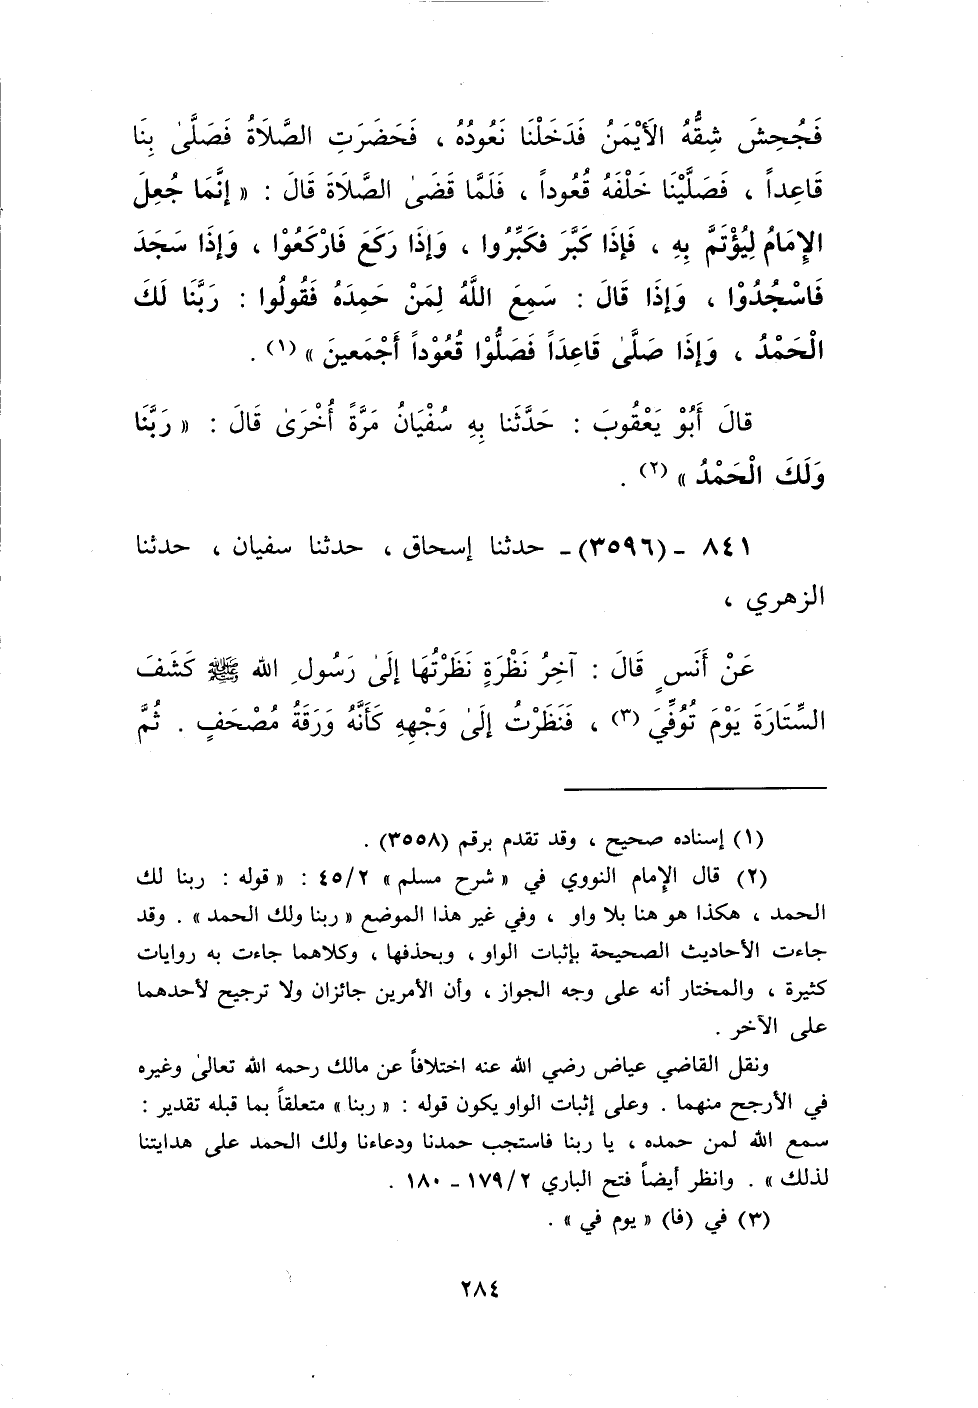 فَجُحِشَ شِقُّهُ الأَيْمَنُ فَدَخَلْنَا نَعُودُهُ ، فَحَضَرَتِ الصَّلَاةُ فَصَلَّىٰ بِنَا
قَاعِداً ، فَصَلَّيْنَا خَلْفَهُ قُعُوداً ، فَلَمَّا قَضَىٰ الصَّلَاةَ قَالَ : « إِنَّمَا جُعِلَ
الإِمَامُ لِيُؤْتَمَّ بِهِ ، فَإِذَا كَبَّرَ فَكَبِّرُوا ، وَإِذَا رَكَعَ فَارْكَعُوْا ، وَإِذَا سَجَدَ
فَاسْجُدُوْا ، وَإِذَا قَالَ : سَمِعَ اللَّهُ لِمَنْ حَمِدَهُ فَقُولُوا : رَبَّنَا لَكَ
الْحَمْدُ ، وَإِذَا صَلَّىٰ قَاعِدَاً فَصَلُّوْا قُعُوْداً أَجْمَعينَ » (١) .
قالَ أَبُوْ يَعْقُوبَ : حَدَّثَنا بِهِ سُفْيَانُ مَرَّةً أُخْرَىٰ قَالَ : « رَبَّنَا
وَلَكَ الْحَمْدُ » (٢) .
٨٤١ ـ (٣٥٩٦) ـ حدثنا إسحاق ، حدثنا سفيان ، حدثنا
الزهري ،
عَنْ أَنَسٍ قَالَ : آخِرُ نَظْرَةٍ نَظَرْتُهَا إِلَىٰ رَسُولِ الله ﷺ كَشَفَ
السِّتَارَةَ يَوْمَ تُوُفِّيَ (٣) ، فَنَظَرْتُ إِلَىٰ وَجْهِهِ كَأَنَّهُ وَرَقَةُ مُصْحَفٍ . ثُمَّ
(١) إسناده صحيح ، وقد تقدم برقم (٣٥٥٨) .
(٢) قال الإمام النووي في « شرح مسلم » ٤٥/٢ : « قوله : ربنا لك
الحمد ، هكذا هو هنا بلا واو ، وفي غير هذا الموضع « ربنا ولك الحمد » . وقد
جاءت الأحاديث الصحيحة بإثبات الواو ، وبحذفها ، وكلاهما جاءت به روايات
كثيرة ، والمختار أنه على وجه الجواز ، وأن الأمرين جائزان ولا ترجيح لأحدهما
على الآخر .
ونقل القاضي عياض رضي الله عنه اختلافاً عن مالك رحمه الله تعالىٰ وغيره
في الأرجح منهما . وعلى إثبات الواو يكون قوله : « ربنا » متعلقاً بما قبله تقدير :
سمع الله لمن حمده ، يا ربنا فاستجب حمدنا ودعاءنا ولك الحمد على هدايتنا
لذلك » . وانظر أيضاً فتح الباري ١٧٩/٢ ـ ١٨٠ .
(٣) في (فا) « يوم في » .
٢٨٤